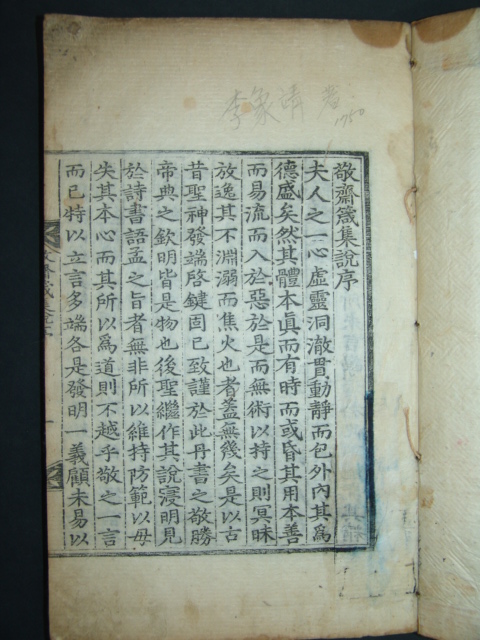 李象靖 著
1750
敬齋箴集說序
夫人之一心虛靈洞澈貫動靜而包外內其爲
德盛矣然其體本眞而有時而或昏其用本善
而易流而入於惡於是而無術以持之則冥昧
放逸其不淵溺而焦火也者蓋無幾矣是以古
昔聖神發端啓鍵固已致謹於此丹書之敬勝
帝典之欽明皆是物也後聖繼作其說寖明見
於詩書語孟之旨者無非所以維持防範以毋
失其本心而其所以爲道則不越乎敬之一言
而已特以立言多端各是發明一義顧未易以